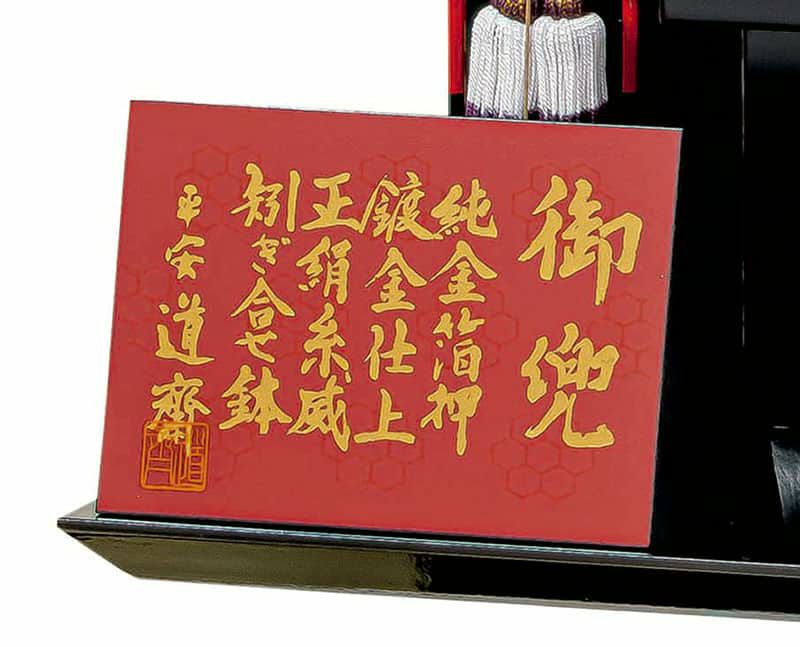 御兜
純金箔押
鍍金仕上
正絹糸威
矧ぎ合せ鉢
平安道齊